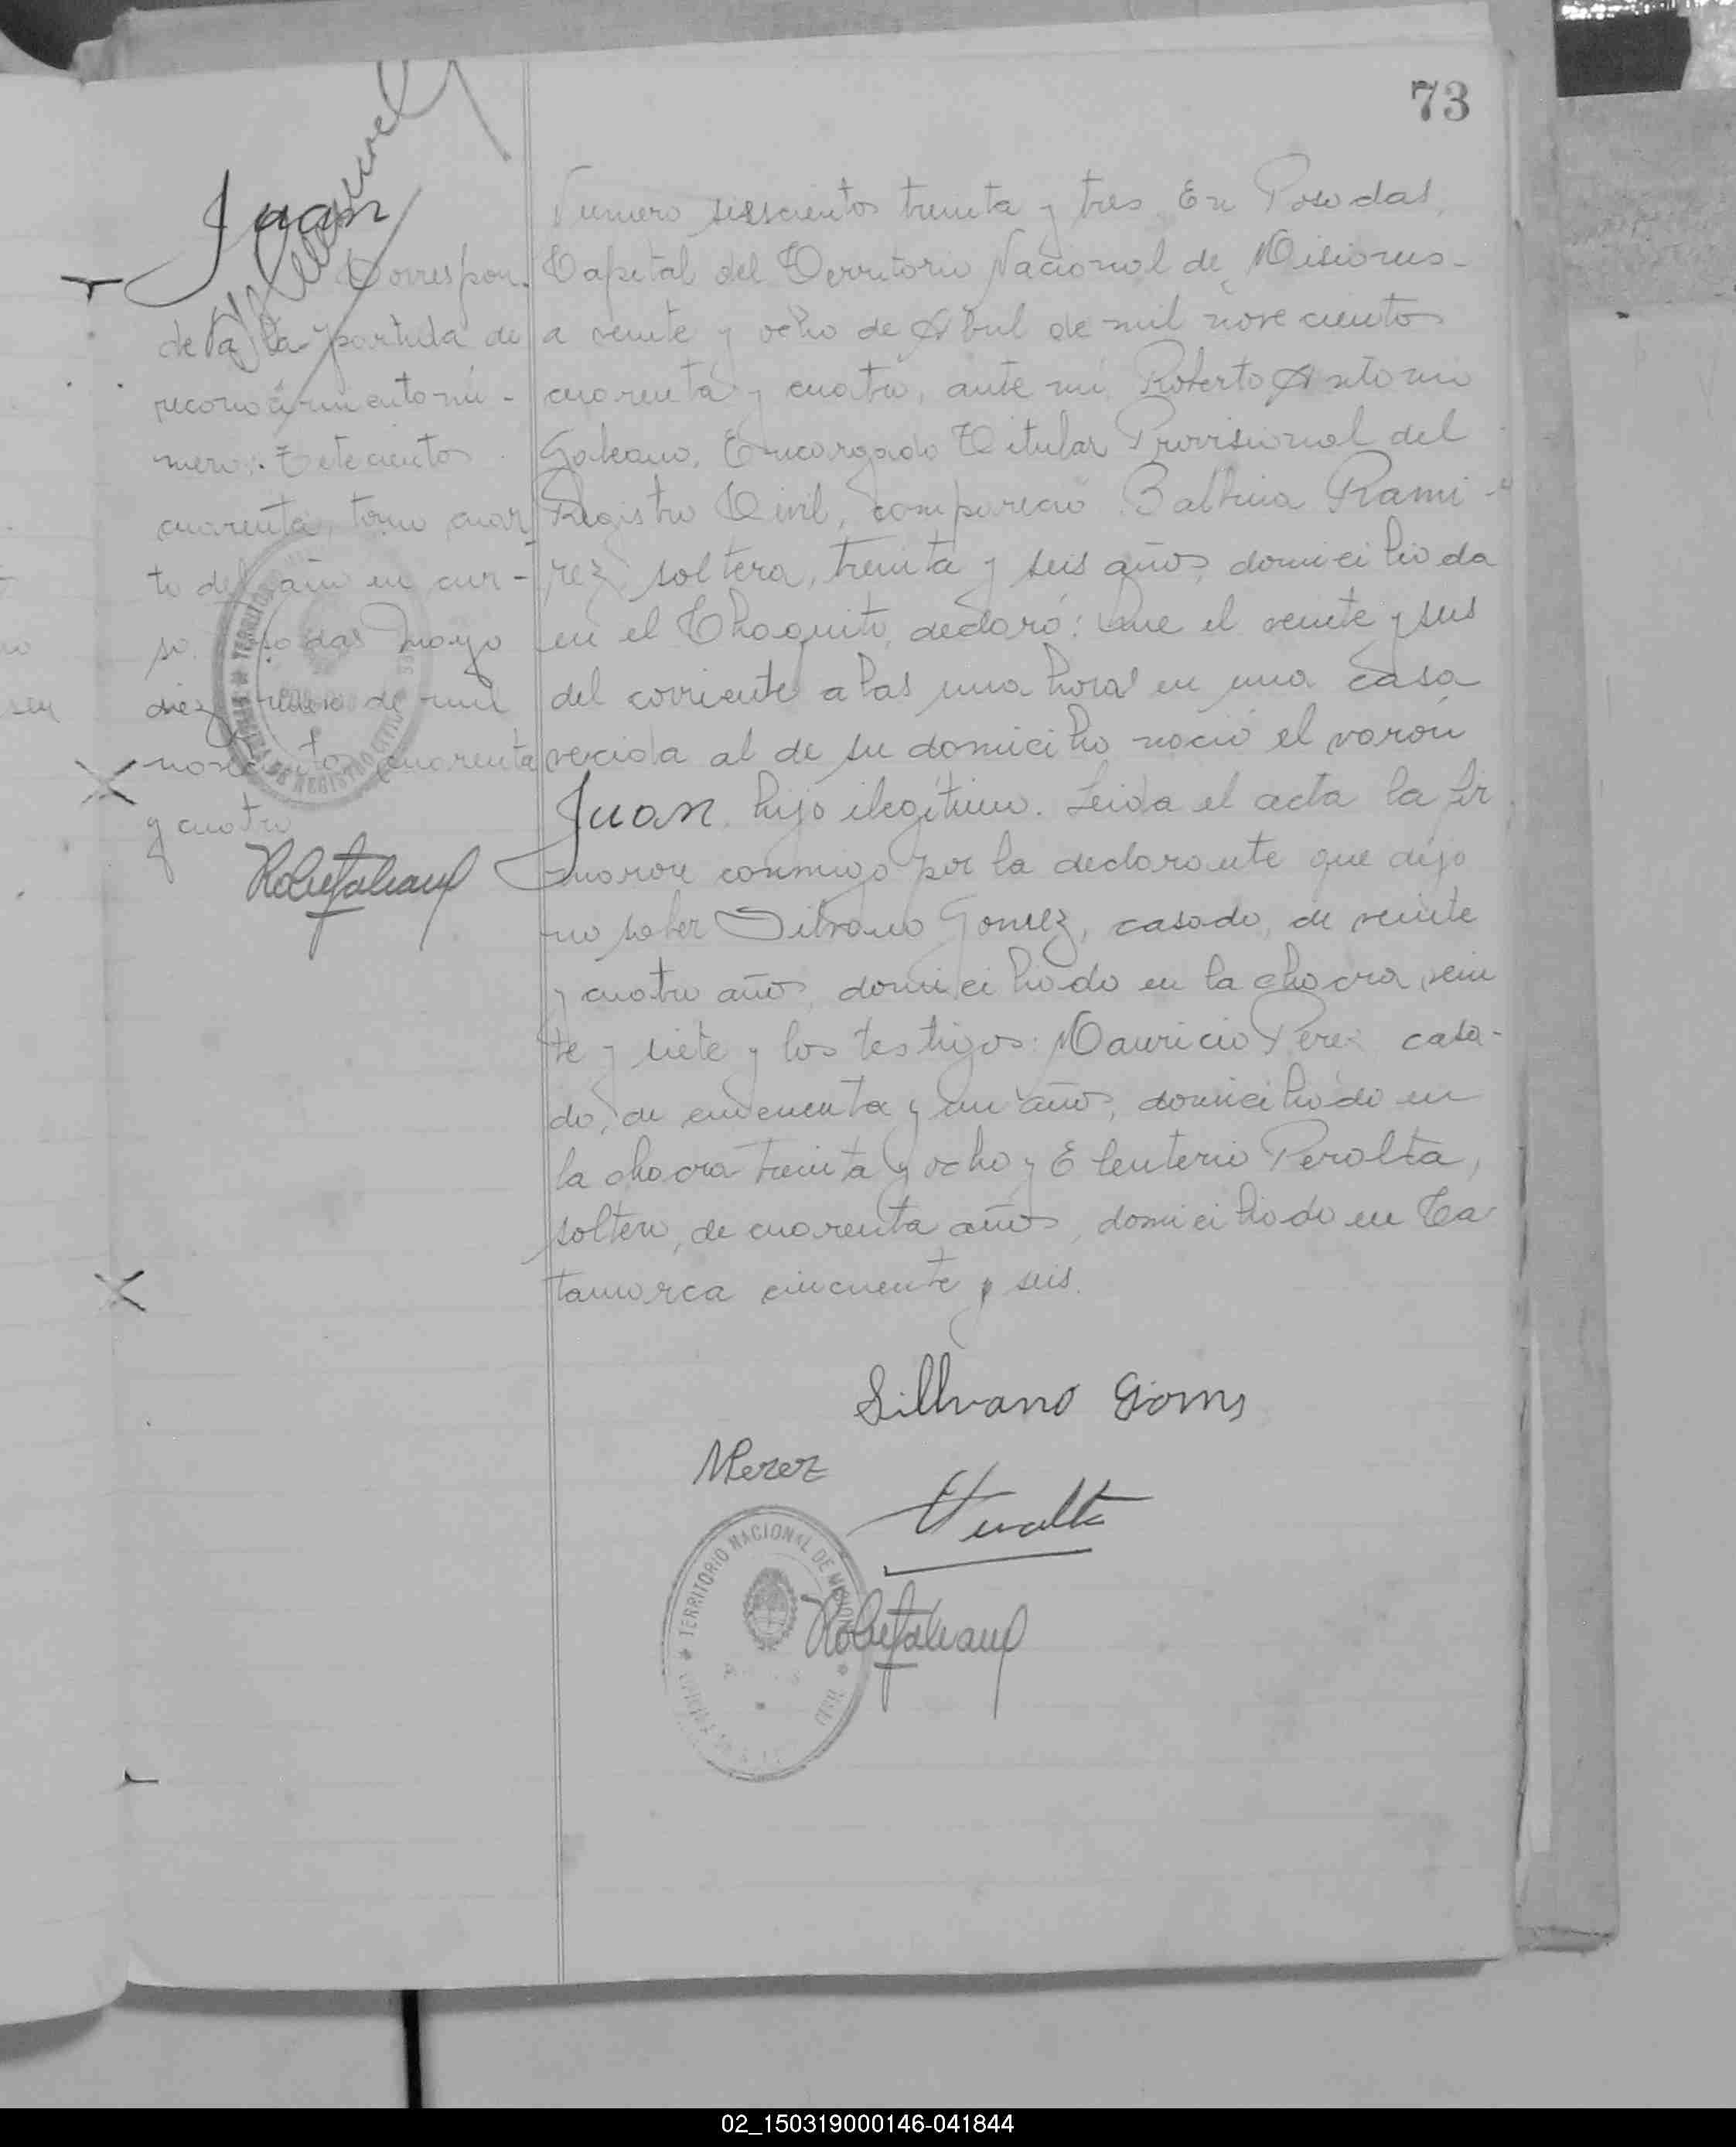 73
Juan
Correspon-
de a la partida de
reconocimiento nú-
mero: Setecientos
cuarenta, tomo cuar
to del año en cur-
so. Posadas mayo
diez de mil
novecientos cuarenta
y cuatro
Numero seiscientos treinta y tres. En Posadas,
Capital del Territorio Nacional de Misiones-
a veinte y ocho de Abril de mil novecientos
cuarenta y cuatro, ante mi, Roberto Antonio
Galeano, Encargado Titular Provisional del
Registro Civil, compareció Balbina Rami-
rez, soltera, treinta y seis años, domiciliada
en el Chaquito, declaró: Que el veinte y seis
del corriente a las una hora en una casa
vecida al de su domicilio nació el varón
Juan, hijo ilegítimo. Leida el acta la fir
maron conmigo por la declarante que dijo
no saber Silvano Gomez, casado, de veinte
y cuatro años, domiciliado en la chacra vein
te y siete y los testigos: Mauricio Perez casa-
do, de cincuenta y un años, domiciliado en
la chacra treinta y ocho y Eleuterio Peralta,
soltero, de cuarenta años, domiciliado en Ca-
tamarca cincuenta y seis.
Sillvano Goms
MPerez
EPeralta
TERRITORIO NACIONAL DE MISIONES
CIVIL
02_150319000146-041844